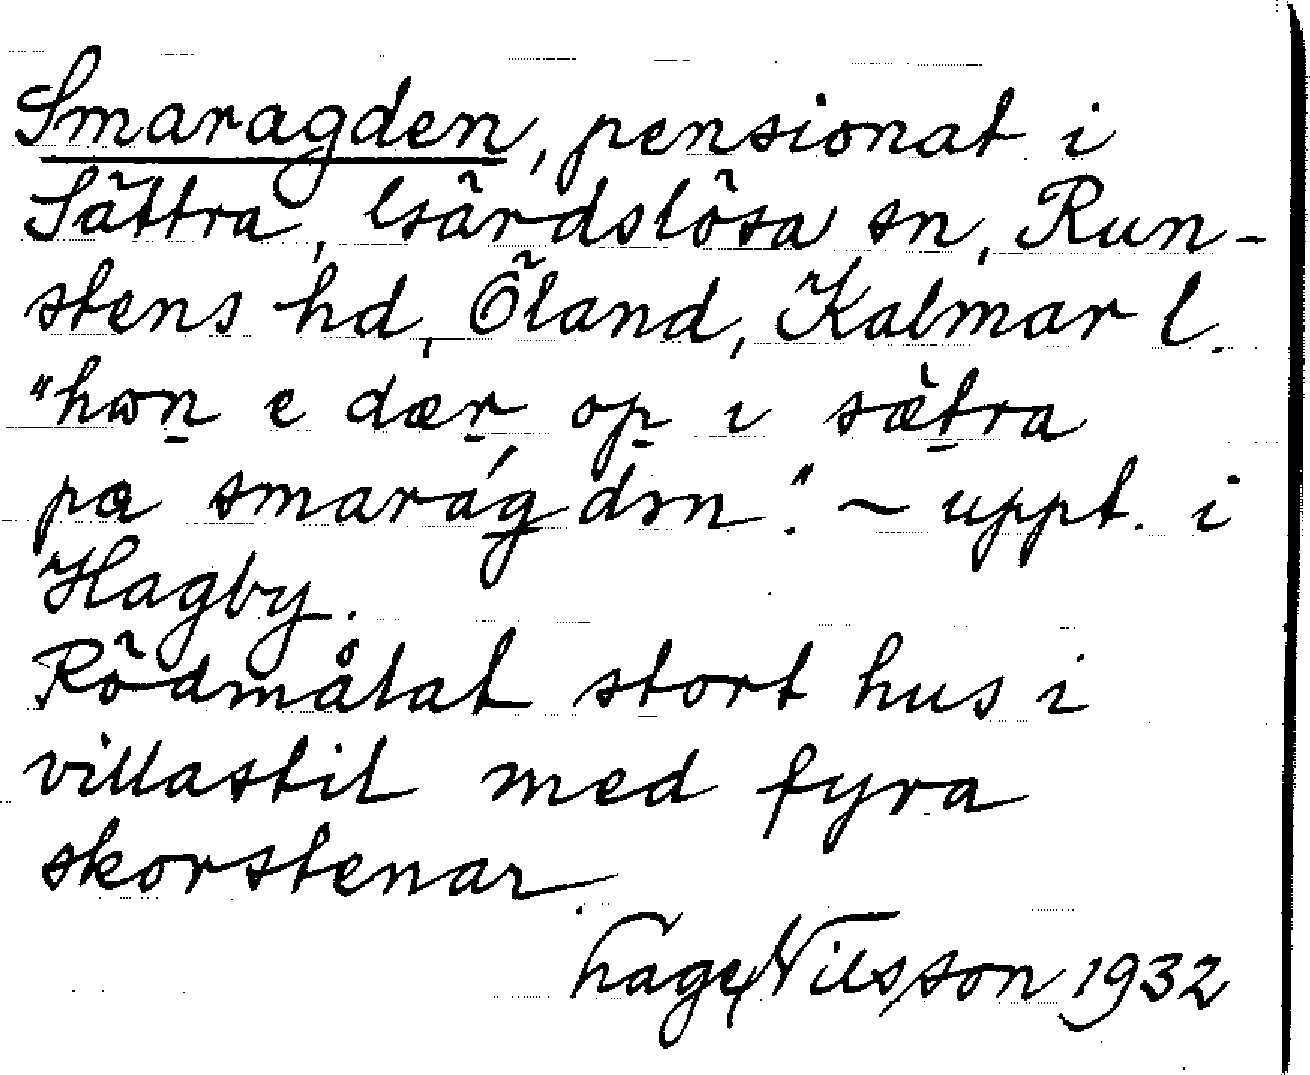 Smaragden, pensionat i
Sättra, Gärdslösa sn, Run-
stens hd, Öland, Kalmar l.
"hωn e dær, op i sætra
pα smarágdεn." ~ uppt. i
Hagby.
Rödmålat stort hus i
villastil med fyra
skorstenar.
Hage Nilsson 1932